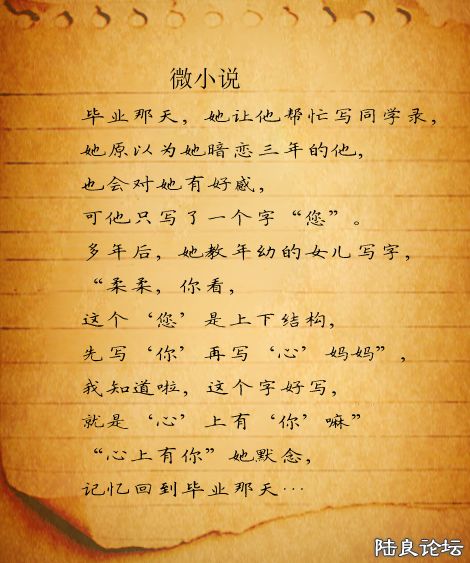 微小说
毕业那天，她让他帮忙写同学录，
她原以为她暗恋三年的他，
也会对她有好感，
可他只写了一个字“您”。
多年后，她教年幼的女儿写字，
“柔柔，你看，
这个‘您’是上下结构，
先写‘你’再写‘心’妈妈”，
我知道啦，这个字好写，
就是‘心’上有‘你’嘛”
“心上有你”她默念，
记忆回到毕业那天…
陆良论坛